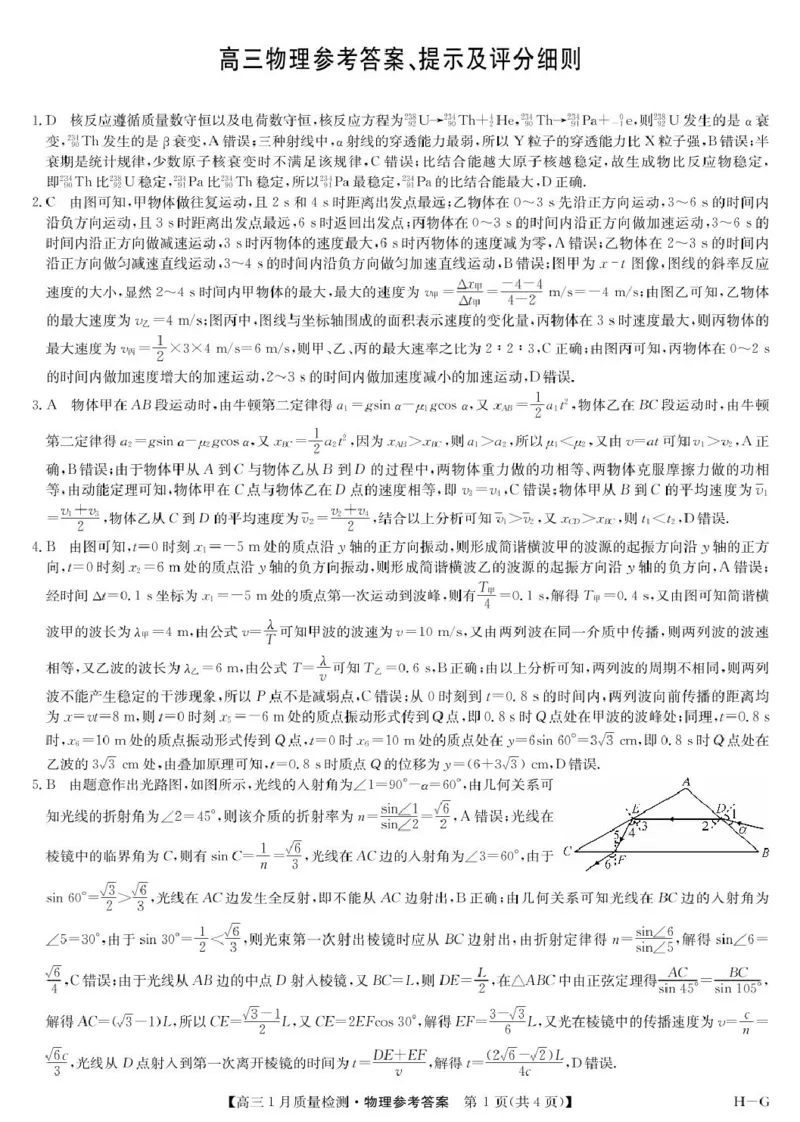 高三物理参考答案、提示及评分细则
1. D 核反应遵循质量数守恒以及电荷数守恒,核反应方程为²³⁸₉₂U→²³⁴₉₀Th+⁴₂He,²³⁴₉₀Th→²³⁴₉₁Pa+⁰₋₁e,则²³⁸₉₂U发生的是α衰
变,²³⁴₉₀Th发生的是β衰变,A错误;三种射线中,α射线的穿透能力最弱,所以Y粒子的穿透能力比X粒子强,B错误;半
衰期是统计规律,少数原子核衰变时不满足该规律,C错误;比结合能越大原子核越稳定,故生成物比反应物稳定,
即²³⁴₉₀Th比²³⁸₉₂U稳定,²³⁴₉₁Pa比²³⁴₉₀Th稳定,所以²³⁴₉₁Pa最稳定,²³⁴₉₁Pa的比结合能最大,D正确.
2. C 由图可知,甲物体做往复运动,且2 s和4 s时距离出发点最远;乙物体在0~3 s先沿正方向运动,3~6 s的时间内
沿负方向运动,且3 s时距离出发点最远,6 s时返回出发点;丙物体在0~3 s的时间内沿正方向做加速运动,3~6 s的
时间内沿正方向做减速运动,3 s时丙物体的速度最大,6 s时丙物体的速度减为零,A错误;乙物体在2~3 s的时间内
沿正方向做匀减速直线运动,3~4 s的时间内沿负方向做匀加速直线运动,B错误;图甲为x-t图像,图线的斜率反应
速度的大小,显然2~4 s时间内甲物体的最大,最大的速度为v甲=Δx甲/Δt甲=(-4-4)/(4-2) m/s=-4 m/s;由图乙可知,乙物体
的最大速度为v乙=4 m/s;图丙中,图线与坐标轴围成的面积表示速度的变化量,丙物体在3 s时速度最大,则丙物体的
最大速度为v丙=1/2×3×4 m/s=6 m/s,则甲、乙、丙的最大速率之比为2∶2∶3,C正确;由图丙可知,丙物体在0~2 s
的时间内做加速度增大的加速运动,2~3 s的时间内做加速度减小的加速运动,D错误.
3. A 物体甲在AB段运动时,由牛顿第二定律得a₁=gsin α-μ₁gcos α,又x_AB=1/2a₁t²,物体乙在BC段运动时,由牛顿
第二定律得a₂=gsin α-μ₂gcos α,又x_BC=1/2a₂t²,因为x_AB>x_BC,则a₁>a₂,所以μ₁<μ₂,又由v=at可知v₁>v₂,A正
确,B错误;由于物体甲从A到C与物体乙从B到D的过程中,两物体重力做的功相等、两物体克服摩擦力做的功相
等,由动能定理可知,物体甲在C点与物体乙在D点的速度相等,即v₃=v₄,C错误;物体甲从B到C的平均速度为v̄₁
=(v₁+v₃)/2,物体乙从C到D的平均速度为v̄₂=(v₂+v₄)/2,结合以上分析可知v̄₁>v̄₂,又x_CD>x_BC,则t₁<t₂,D错误.
4. B 由图可知,t=0时刻x₁=-5 m处的质点沿y轴的正方向振动,则形成简谐横波甲的波源的起振方向沿y轴的正方
向,t=0时刻x₂=6 m处的质点沿y轴的负方向振动,则形成简谐横波乙的波源的起振方向沿y轴的负方向,A错误;
经时间Δt=0.1 s坐标为x₁=-5 m处的质点第一次运动到波峰,则有T甲/4=0.1 s,解得T甲=0.4 s,又由图可知简谐横
波甲的波长为λ甲=4 m,由公式v=λ/T可知甲波的波速为v=10 m/s,又由两列波在同一介质中传播,则两列波的波速
相等,又乙波的波长为λ乙=6 m,由公式T=λ/v可知T乙=0.6 s,B正确;由以上分析可知,两列波的周期不相同,则两列
波不能产生稳定的干涉现象,所以P点不是减弱点,C错误;从0时刻到t=0.8 s的时间内,两列波向前传播的距离均
为x=vt=8 m,则t=0时刻x₅=-6 m处的质点振动形式传到Q点,即0.8 s时Q点处在甲波的波峰处;同理,t=0.8 s
时,x₆=10 m处的质点振动形式传到Q点,t=0时x₆=10 m处的质点处在y=6sin 60°=3√3 cm,即0.8 s时Q点处在
乙波的3√3 cm处,由叠加原理可知,t=0.8 s时质点Q的位移为y=(6+3√3) cm,D错误.
5. B 由题意作出光路图,如图所示,光线的入射角为∠1=90°-α=60°,由几何关系可
知光线的折射角为∠2=45°,则该介质的折射率为n=sin∠1/sin∠2=√6/2,A错误;光线在
棱镜中的临界角为C,则有sin C=1/n=√6/3,光线在AC边的入射角为∠3=60°,由于
A
E
D
1
2
3
4
5
α
C
6
F
B
sin 60°=√3/2>√6/3,光线在AC边发生全反射,即不能从AC边射出,B正确;由几何关系可知光线在BC边的入射角为
∠5=30°,由于sin 30°=1/2<√6/3,则光束第一次射出棱镜时应从BC边射出,由折射定律得n=sin∠6/sin∠5,解得sin∠6=
√6/4,C错误;由于光线从AB边的中点D射入棱镜,又BC=L,则DE=L/2,在△ABC中由正弦定理得AC/sin 45°=BC/sin 105°,
解得AC=(√3-1)L,所以CE=(√3-1)/2 L,又CE=2EFcos 30°,解得EF=(3-√3)/6 L,又光在棱镜中的传播速度为v=c/n=
√6c/3,光线从D点射入到第一次离开棱镜的时间为t=(DE+EF)/v,解得t=(2√6-√2)L/4c,D错误.
【高三1月质量检测·物理参考答案 第1页(共4页)】 H-G